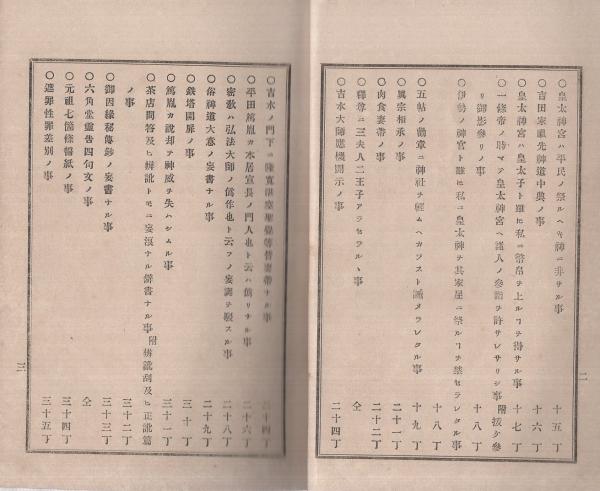 〇皇太神宮ハ平民ノ祭ルヘキ神ニ非サル事 十五丁
〇吉田家祖先神道中興ノ事 十六丁
〇皇太神宮ハ皇太子ト雖ニ私ニ幣帛ヲ上ルヿヲ得サル事 十七丁
〇一條帝ノ時マテ皇太神宮ヘ諸人ノ參詣ヲ許サレサリシ事 附拔ケ參
リ御影參リノ事 十八丁
〇伊勢ノ神官ト雖ニ私ニ皇太神ヲ其家屋ニ祭ルヿヲ禁セラレタル事
十八丁
〇五帖ノ勸章ニ神社ヲ輕ムヘカラスト誡メラレタル事 十九丁
〇異宗相承ノ事 二十一丁
〇肉食妻帶ノ事 二十二丁
〇釋尊ニ三夫人二王子アラセラルヽ事 仝
〇吉水大師應機開示ノ事 二十四丁
二
〇吉水ノ門下ニ隆寛湛空聖覺等皆妻帶ナル事 二十四丁
〇平田篤胤カ本居宣長ノ門人也ト云フハ僞リナル事 二十六丁
〇密教ハ弘法大師ノ僞作也ト云フノ妄謂ヲ駁スル事 二十八丁
〇俗神道大意ノ妄書ナル事 二十九丁
〇鉄塔開扉ノ事 三十丁
〇篤胤カ說却テ神威ヲ失ハシムル事 三十一丁
〇茶店問答及ヒ辨訛トモニ妄濱ナル僻書ナル事 附辨訛刮及ヒ正訛篇
ノ事 三十二丁
〇御因緣秘傳鈔ノ妄書ナル事 三十三丁
〇六角堂靈告四句文ノ事 仝
〇元祖七箇條誓紙ノ事 三十四丁
〇遮罪性罪差別ノ事 三十五丁
三